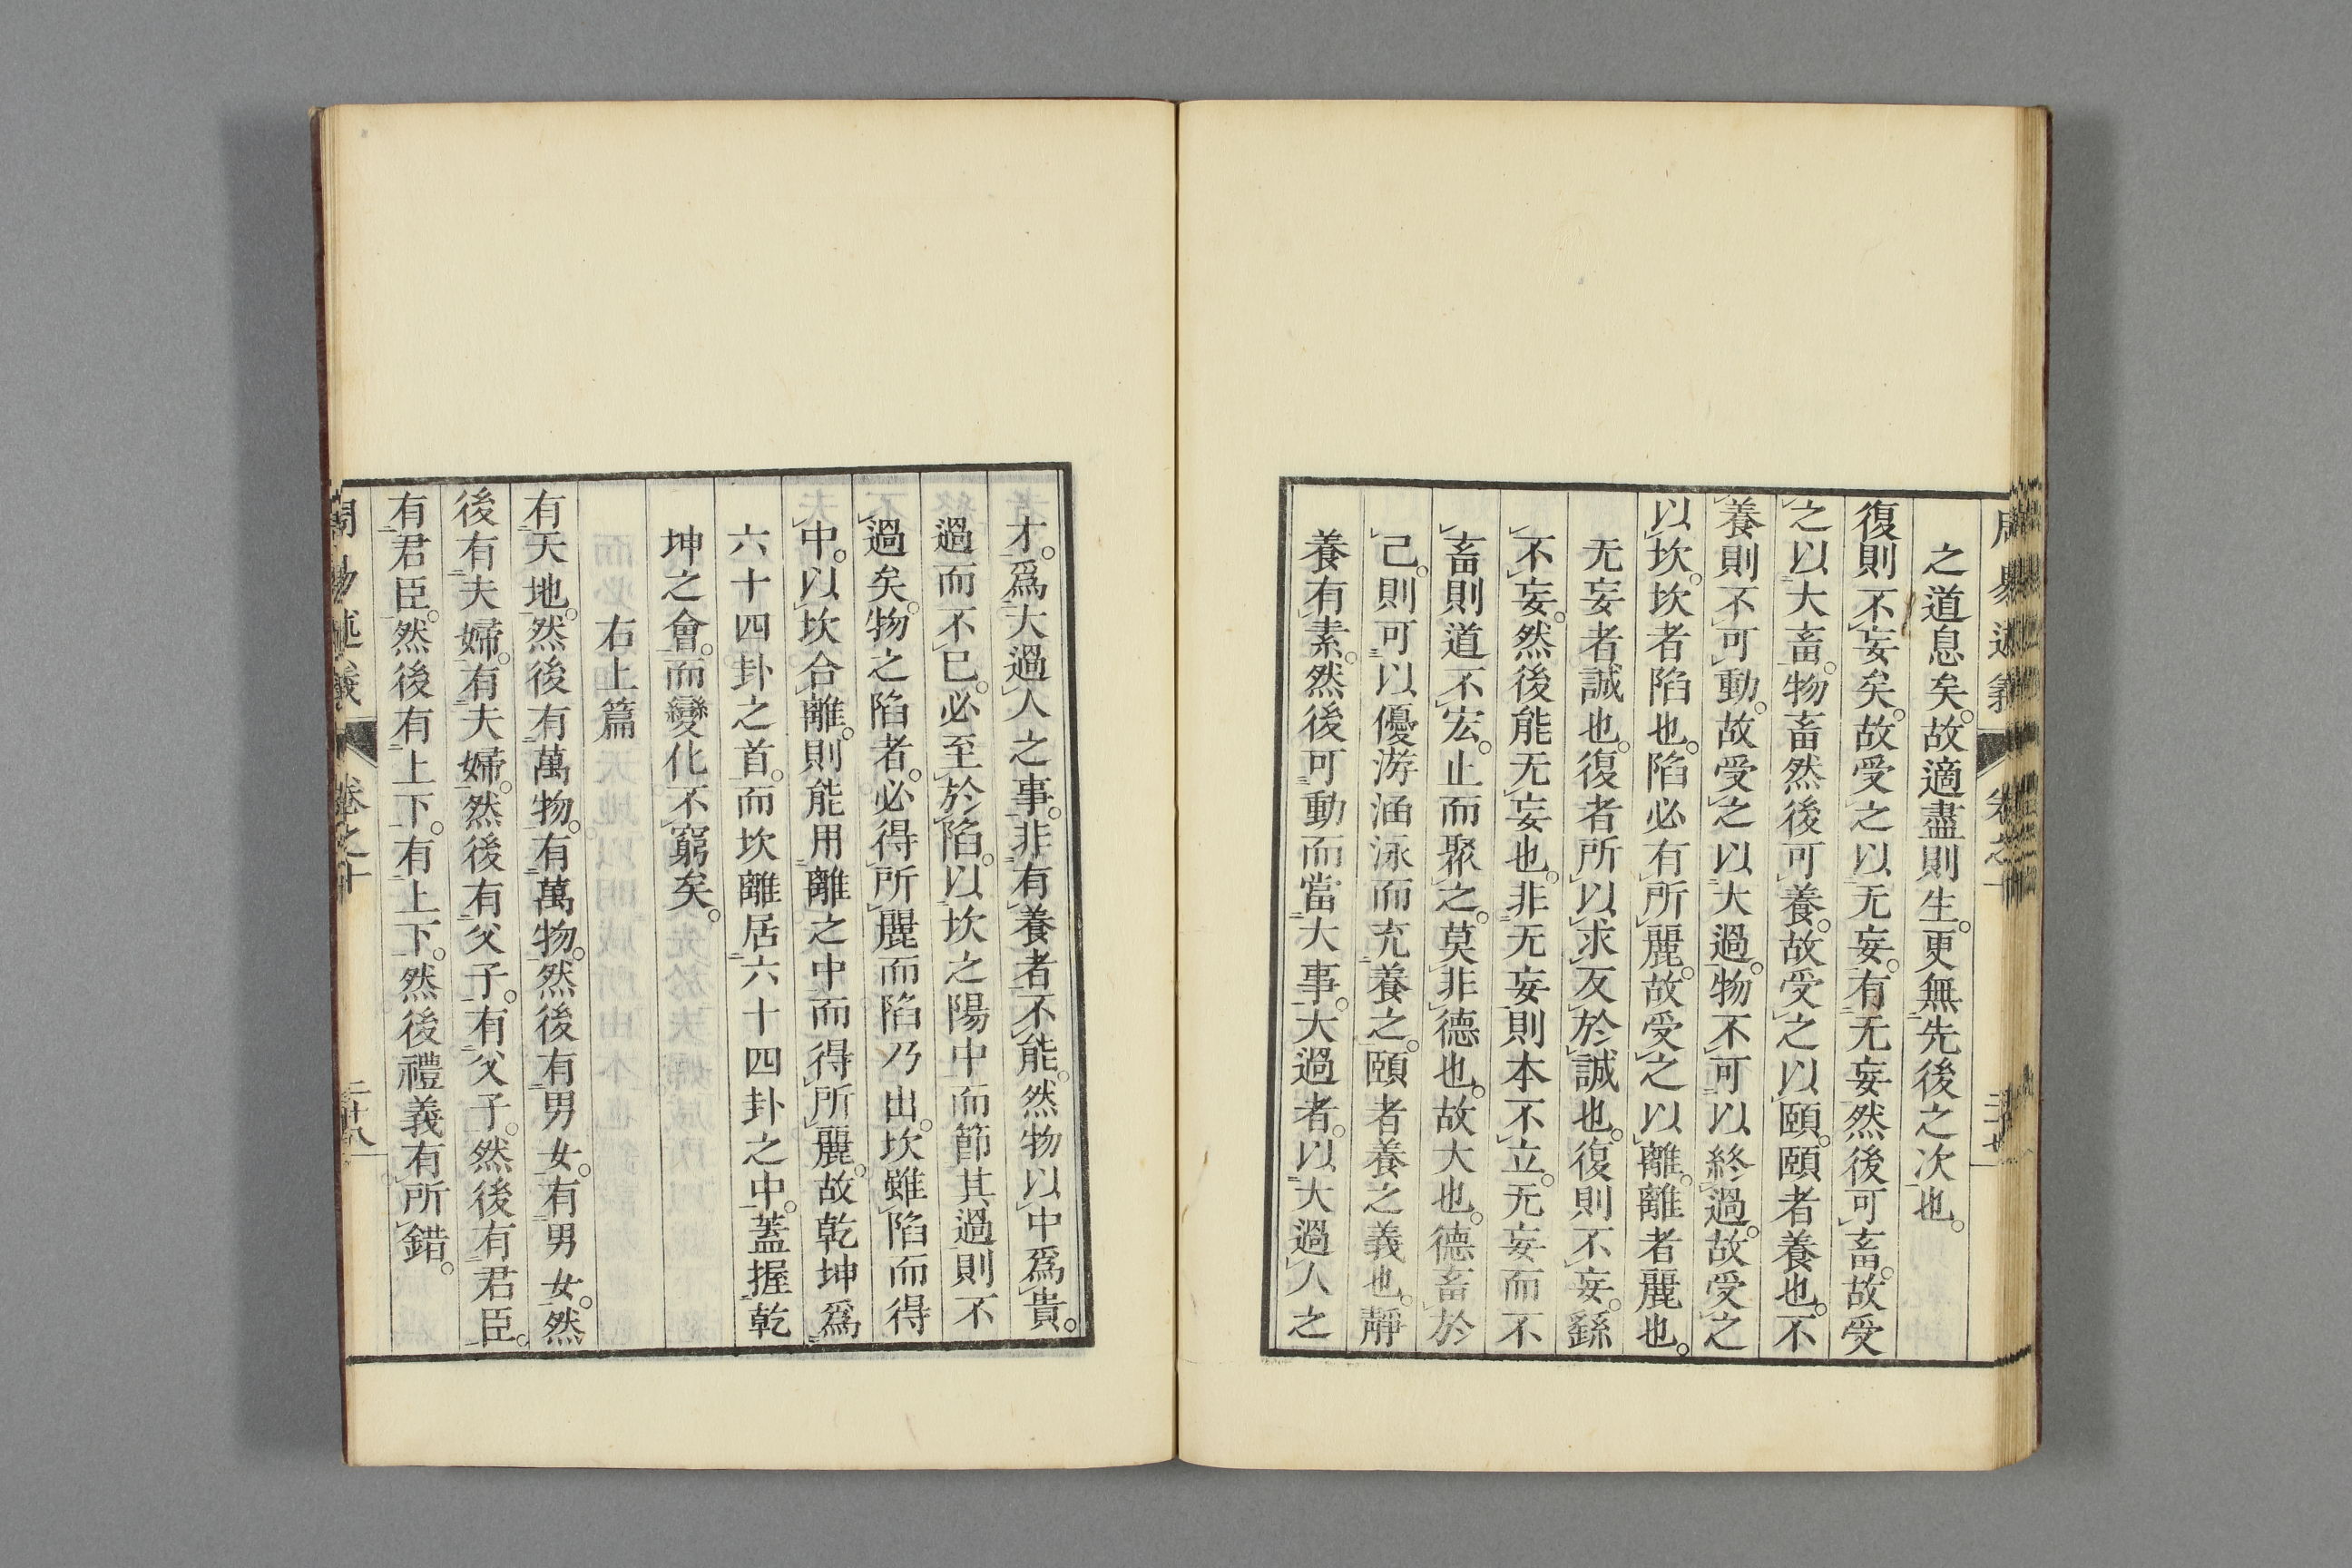 之道息矣。故適盡則生。更無先後之次也。
復則不妄矣。故受之以无妄。有无妄然後可畜。故受
之以大畜。物畜然後可養。故受之以頤。頤者養也。不
養則不可動。故受之以大過。物不可以終過。故受之
以坎。坎者陷也。陷必有所麗。故受之以離。離者麗也。
无妄者誠也。復者所以求反於誠也。復則不妄。繇
不妄。然後能无妄也。非无妄則本不立。无妄而不
畜則道不宏。止而聚之。莫非德也。故大也。德畜於
己。則可以優游涵泳而充養之。頤者養之義也。靜
養有素。然後可動而當大事。大過者。以大過人之
才。爲大過人之事。非有養者不能。然物以中爲貴。
過而不已。必至於陷。以坎之陽中而節其過。則不
過矣。物之陷者。必得所麗而陷乃出。坎雖陷而得
中。以坎合離。則能用離之中而得所麗。故乾坤爲
六十四卦之首。而坎離居六十四卦之中。蓋握乾
坤之會。而變化不窮矣。
右上篇
有天地。然後有萬物。有萬物。然後有男女。有男女。然
後有夫婦。有夫婦。然後有父子。有父子。然後有君臣。
有君臣。然後有上下。有上下。然後禮義有所錯。
卷之十
二十八